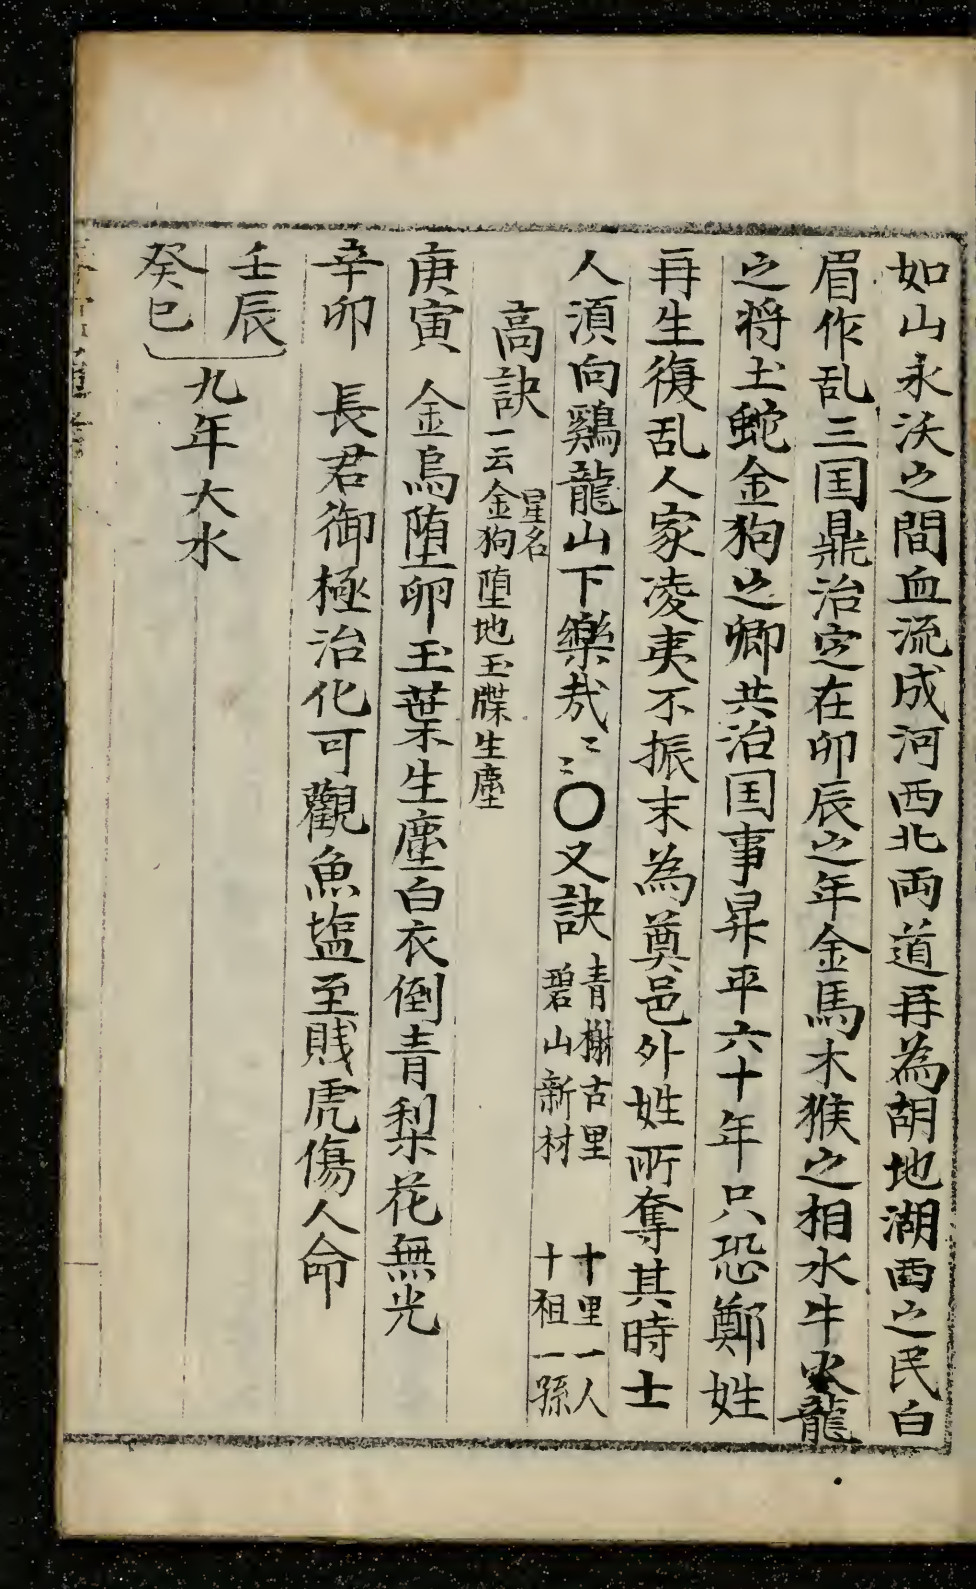 如山永沃之間血流成河西北両道再為胡地湖西之民白
眉作乱三国鼎治定在卯辰之年金馬木猴之相水牛火龍
之将土蛇金狗之卿共治国事昇平六十年只恐鄭姓
再生復乱人家凌夷不振末為奠邑外姓所奪其時士
人湏向鷄龍山下樂哉〻〻○又訣
青槲古里
碧山新村
十里一人
十祖一孫
高訣
一云金狗
星名
堕地玉牒生塵
庚寅 金烏堕卵玉葉生塵白衣倒青梨花無光
辛卯 長君御極治化可觀魚塩至賎虎傷人命
壬辰
癸巳
九年大水